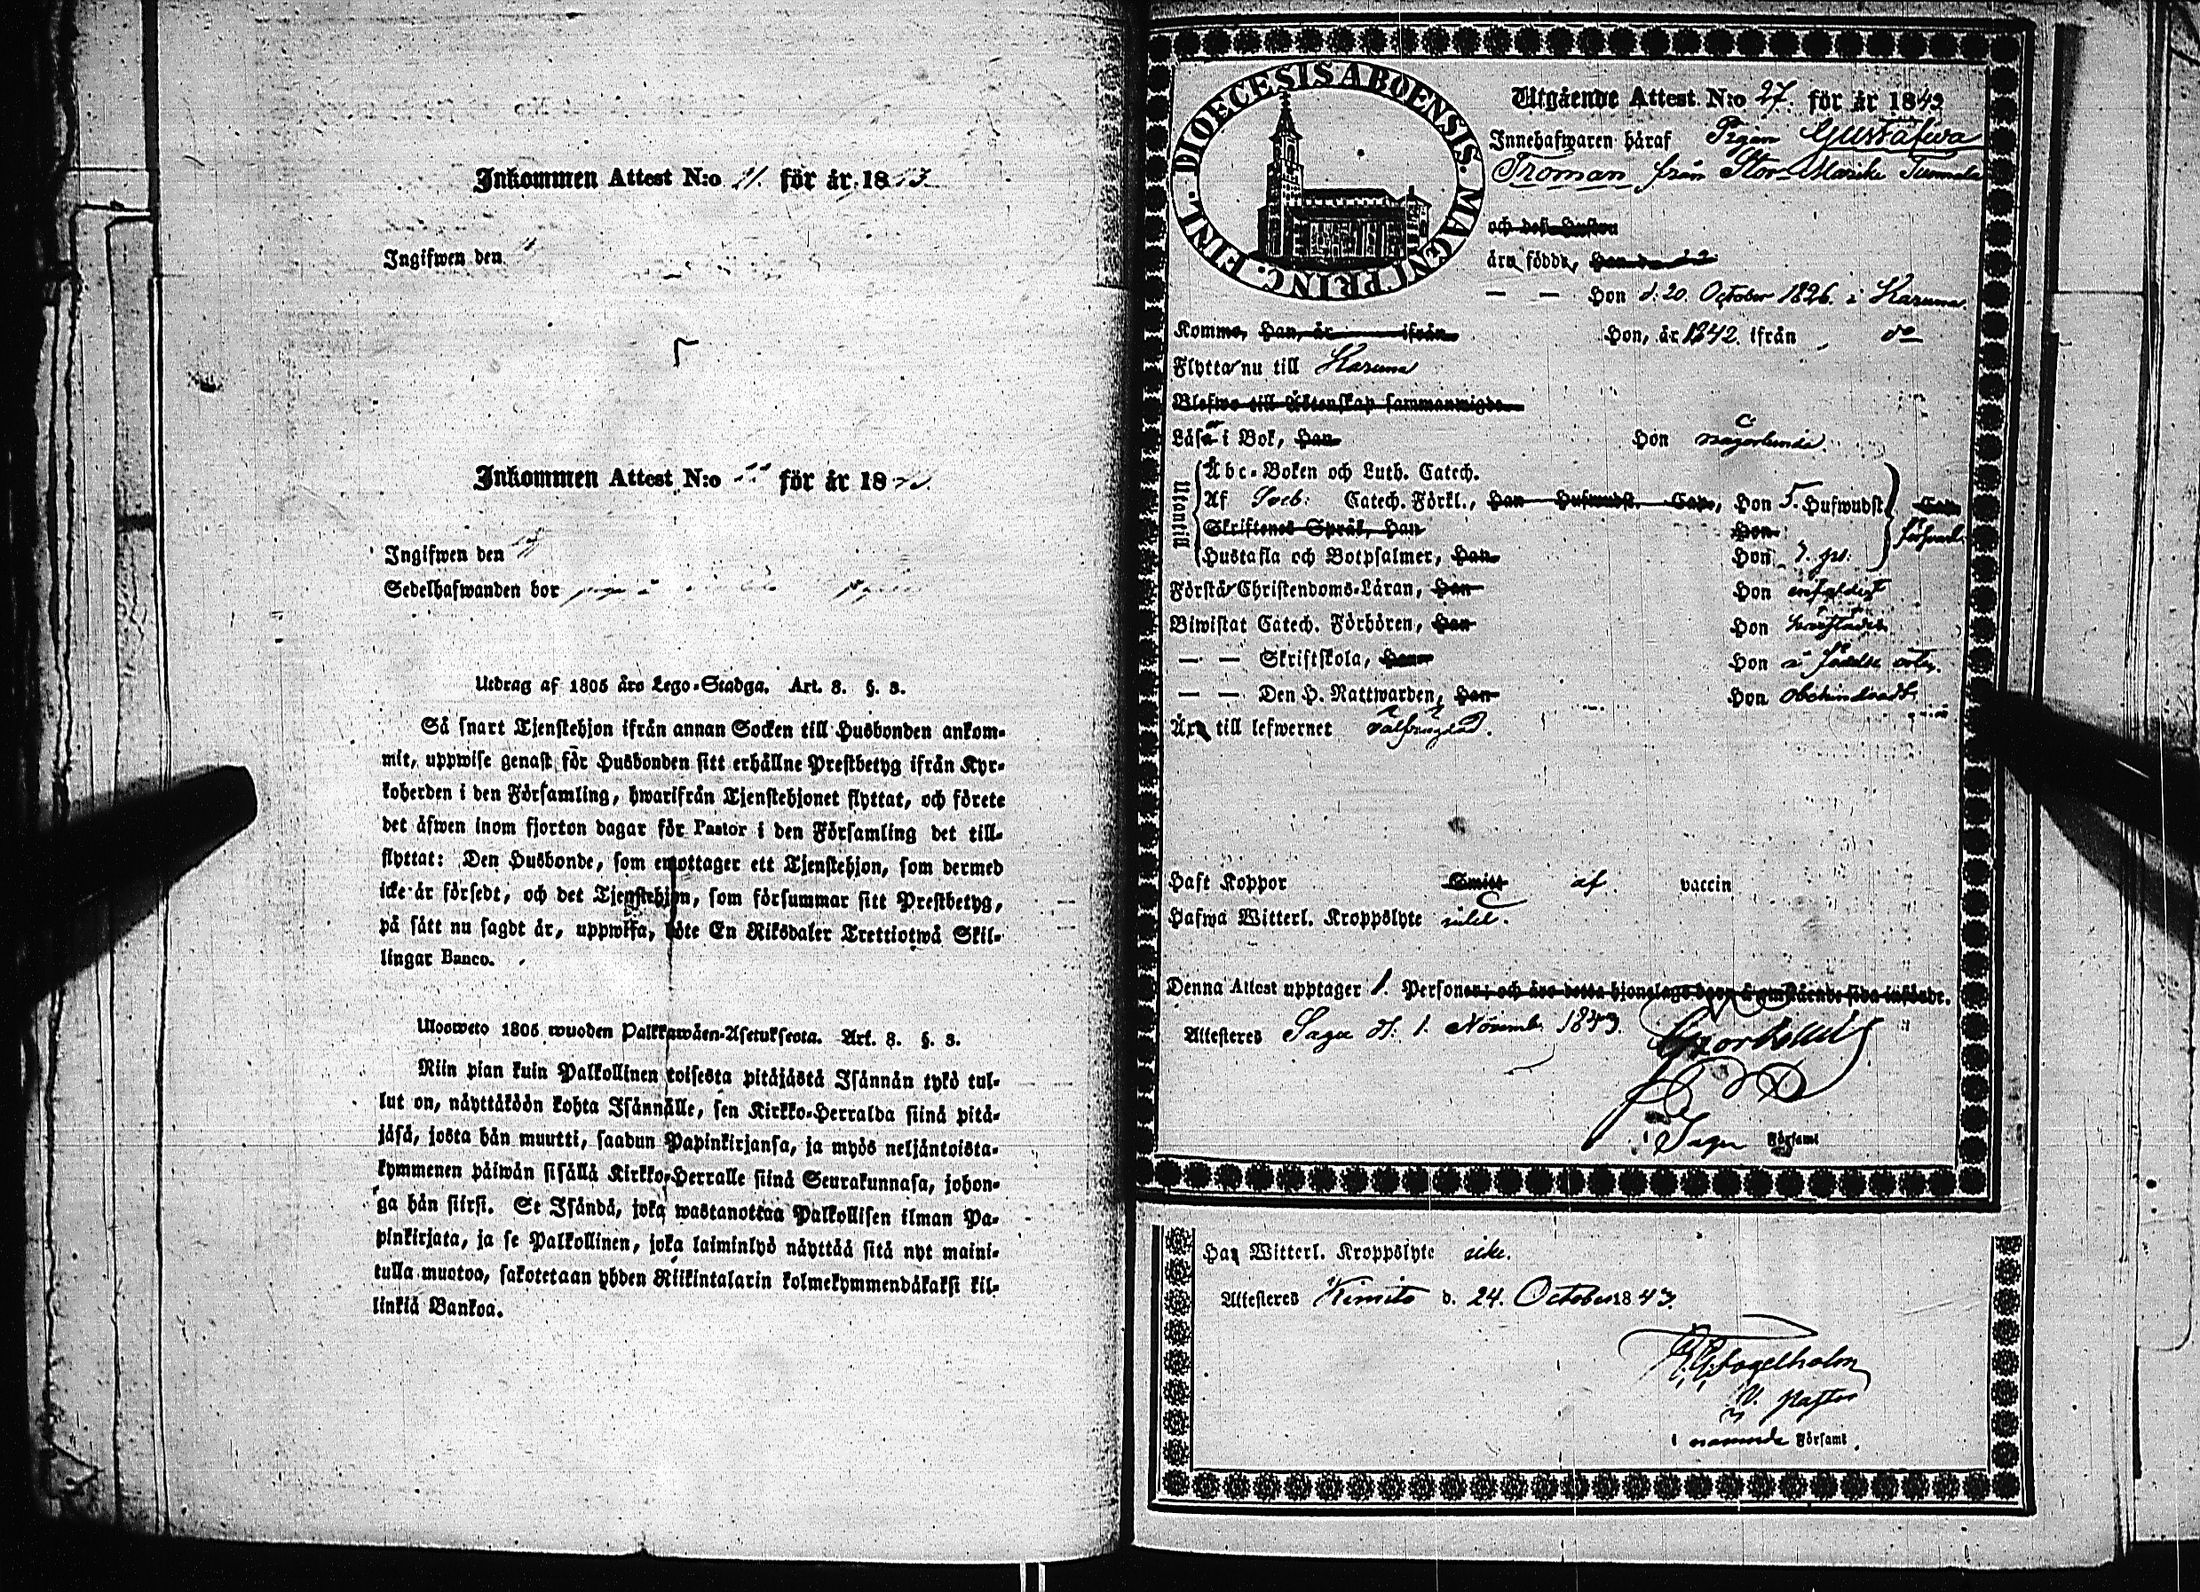 Inkommen Attest N:o 21. för år 1843.
Ingifwen den
Inkommen Attest N:o för år 18
Ingifwen den
Sedelhafwanden bor
Utdrag af 1805 års Lego-Stadga. Art. 8. §. 3.
Så snart Tjenstehjon ifrån annan Socken till Husbonden ankom-
mit, uppwise genast för Husbonden sitt erhållne Prestbetyg ifrån Kyr-
koherden i den Församling, hwarifrån Tjenstehjonet flyttat, och förete
det äfwen inom fjorton dagar för Pastor i den Församling det till-
flyttat: Den Husbonde, som emottager ett Tjenstehjon, som dermed
icke är försedt, och det Tjenstehjon, som försummar sitt Prestbetyg,
på sätt nu sagdt är, uppwisa, böte En Riksdaler Trettiotwå Skil-
lingar Banco.
Uloswето 1805 wuoden Palkkawäen-Asetuksesta. Art. 8. §. 3.
Niin pian kuin Palkollinen toisesta pitäjästä Isännän tykö tul-
lut on, näyttäköön kohta Isännälle, sen Kirkko-Herralda siinä pitä-
jäsä, josta hän muutti, saadun Papinkirjansa, ja myös neljäntoista-
kymmenen päiwän sisällä Kirkko-Herralle siinä Seurakunnasa, johon-
ga hän siirsi. Se Isändä, joka wastanottaa Palkollisen ilman Pa-
pinkirjata, ja se Palkollinen, joka laiminlyö näyttää sitä nyt maini-
tulla muotoa, sakotetaan yhden Riikintalarin kolmekymmendäkaksi kil-
linkiä Bankoa.
DIOECESIS ABOENSIS. MAGNI PRINC. FINL.
Utgående Attest N:o 27. för år 1843
Innehafwaren häraf Pigan Gustafwa
Troman från Stor-Marike Tummola
och dess Hustru
äro födde, Han
— — Hon d. 20. October 1826. i Karuna.
Kommo, Han, år ifrån Hon, år 1842. ifrån do
Flytta nu till Karuna
Blefwo till Äktenskap sammanwigde
Läsa i Bok, Han Hon någorlunda.
Utantill
Abc-Boken och Luth. Catech.
Af Sveb: Catech. Förkl., Han Hufwudst. Cap., Hon 5. Hufwudst Cap
Skriftenes Språk, Han Hon
Hustafla och Botpsalmer, Han Hon
Förstå Christendoms-Läran, Han Hon enfaldigt
Biwistat Catech. Förhören, Han Hon
— — Skriftskola, Han Hon
— — Den H. Nattwarden, Han Hon obehindradt.
Äro till lefwernet välfrägdad.
Haft Koppor Smitt af vaccin
Hafwa Witterl. Kroppslyte
Denna Attest upptager 1. Personer; och äro detta hjonelags barn å omstående sida införde.
Attesteres Sagu d. 1. Novemb. 1843.
i Sagu Församl
Har Witterl. Kroppslyte icke.
Attesteres Kimito d. 24. October 1843.
Fogelholm
V. Pastor
i nämnde Församl.